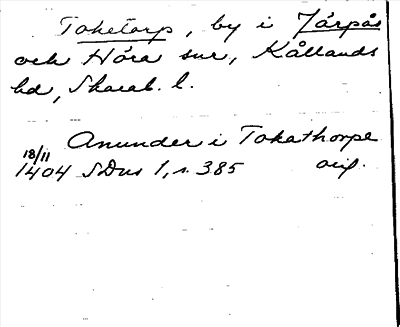 Toketorp, by i Järpås
och Håra snr, Kållands
hd, Skarab. l.
Anunder i Tokathorpe
18/11
1404 SDns 1, s. 385 orig.